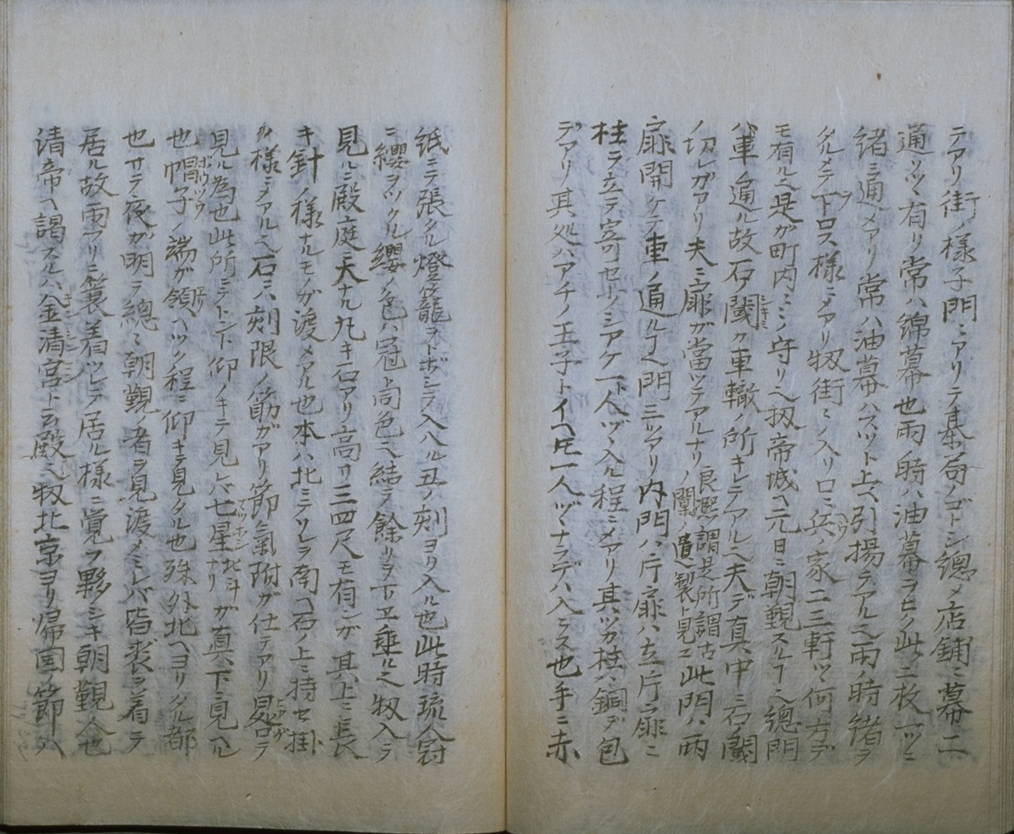 テアリ街ノ様子門ミアリテ碁局ノゴトシ總メ店鋪ニ幕二
通ヅツ有リ常ハ綿幕也雨ノ時ハ油幕ヲヒク此ノ二枚一ツニ
緒ニ通メアリ常ハ油幕ハスツト上ヘ引揚テアル雨ノ時緒ヲ
クルメテ下ロス様ニメアリ扨街ミノ入リ口ニ兵ノ家二三軒ヅツ何方デ
モ有ル是ガ町内ミミノ守リ也扨帝城ヘ元日ニ朝覲スルニ總門
ハ車ノ通ル故石閾ガ車轍ノ所キレテアル夫デ真中ニ石閾
ノ切レガアリ夫ニ扉ガ當ツテアルナリ良熙謂是所謂古ノ闑ノ遺製ト見ユ此門ハ両
扉開ケテ車ノ通ル門三ツアリ内門ハ片扉ハ立片扉ニ
柱ヲ立テ寄セ少シアケ一人ヅツ入ル程ニメアリ其ノツカ柱ハ銅デ包
デアリ其処ハアチノ王子トイヘ𪜈一人ヅツナラデハ入ラス也手ニ赤
紙ニテ張タル燈籠ヲトボシテ入ル丑ノ刻ヨリ入ル也此時琉人冠
ニ纓ヲツクル纓ノ色ハ冠ト同色ヘ結テ餘リヲ下ヱ垂ル扨入テ
見ルニ殿庭ニ大ナル丸キ石アリ高サ三四尺モ有ンガ其上ニ長
キ針ノ様ナルモノガ渡メアル也本ハ北ミソレヲ南ヘ石ノ上ニ持セ掛
タ様ニアル石ハ刻限ノ筋ガアリ節氣附ガ仕テアリ晷ロテ
見ル為也此所ミテトント仰ノキテ見レバ七星北斗ナリガ真下ニ見ヘル
也帽子ノ端ガ領ヘツク程ニ仰キ見タル也殊外北ヘヨリタル都
也サテ夜ガ明テ總ミ朝覲者ヲ見渡メミレバ皆裘ヲ着テ
居ル故雨フリニ簔着ツレテ居ル様ニ覚フ夥シキ朝覲人也
清帝ヘ謁スルハ金清宮ト云殿ヘ扨北京ヨリ帰国ノ節ハ